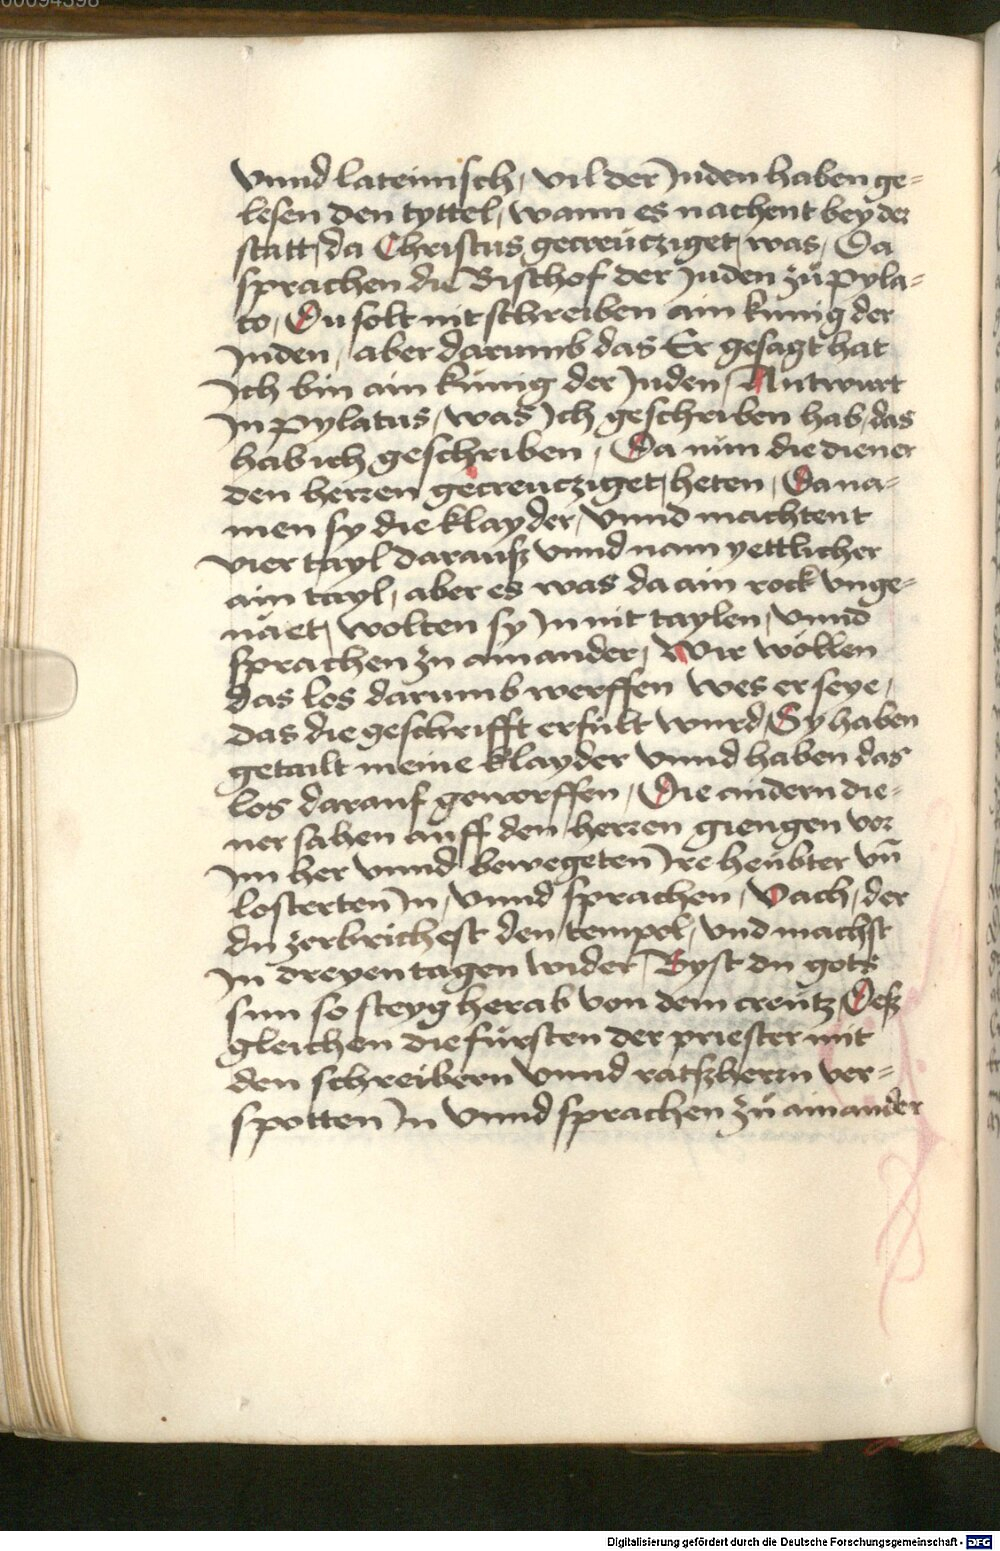 vnnd lateinisch, vil der Juden haben ge=
lesen den tyttel, wann es nachent bey der
statt, da Christus gecreücziget, was, Da
sprachen die Bischof der Juden zů pyla=
to, Du solt nit schreiben ain künig der
Juden, aber darumb das Er gesagt hat
Ich bin ain künig der Juden, Antwurt
In pylatus, was Ich geschriben hab, das
hab ich geschriben, Da nün die diener
den herren gecreucziget, heten, Da na=
men sy die klayder, vnnd machtent
vier tayl darausz vnnd nam yettlicher
ain tayl, aber es was da ain rock vnge=
näet, wolten sy In nit taylen, vnnd
sprachen zu ainander, Wir wöllen
das los darumb werffen wes er seye,
das die geschrifft erfült wurd, Sy haben
getailt meine klayder vnnd haben das
los darauf geworffen, Die andern die=
ner sahen auff den herren giengen vor
Im her vnnd bewegeten Ire heübter vn̄
losterten In, vnnd sprachen, Vach, der
du zerbrichest den tempel, vnd machst
In dreyen tagen wider, Byst du gots
sun so steyg herab von dem creütz, Desz
gleichen die fürsten der priester mit
den schreibern vnnd ratszherrn ver=
spotten In vnnd sprachen zů ainander
Digitalisierung gefördert durch die Deutsche Forschungsgemeinschaft - DFG